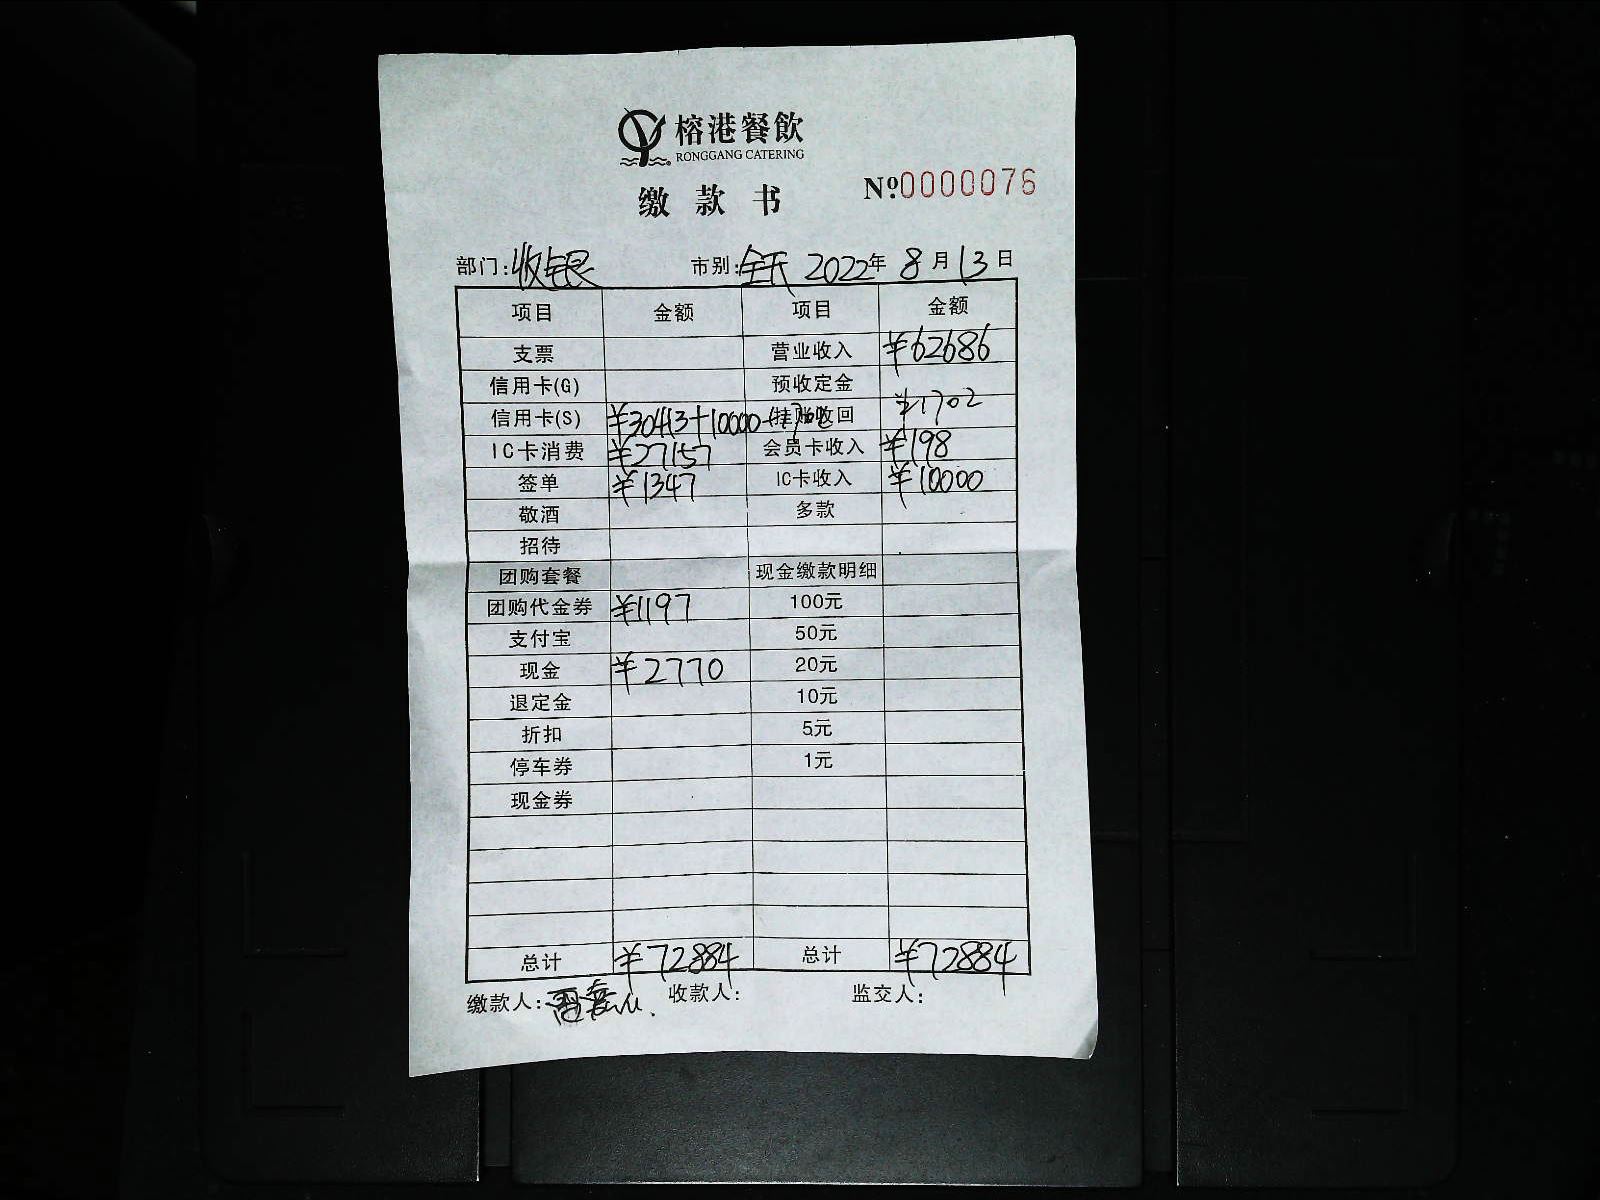 榕港餐飲
RONGGANG CATERING
缴款书 №:0000076
部门:收银 市别:全天 2022年8月13日
项目 金额 项目 金额
支票 营业收入 ¥62686
信用卡(G) 预收定金
信用卡(S) ¥30413+10000+1702 挂账收回 ¥1702
IC卡消费 ¥27157 会员卡收入 ¥198
签单 ¥1347 IC卡收入 ¥10000
敬酒 多款
招待
团购套餐 现金缴款明细
团购代金券 ¥1197 100元
支付宝 50元
现金 ¥2770 20元
退定金 10元
折扣 5元
停车券 1元
现金券
总计 ¥72884 总计 ¥72884
缴款人: 收款人: 监交人: